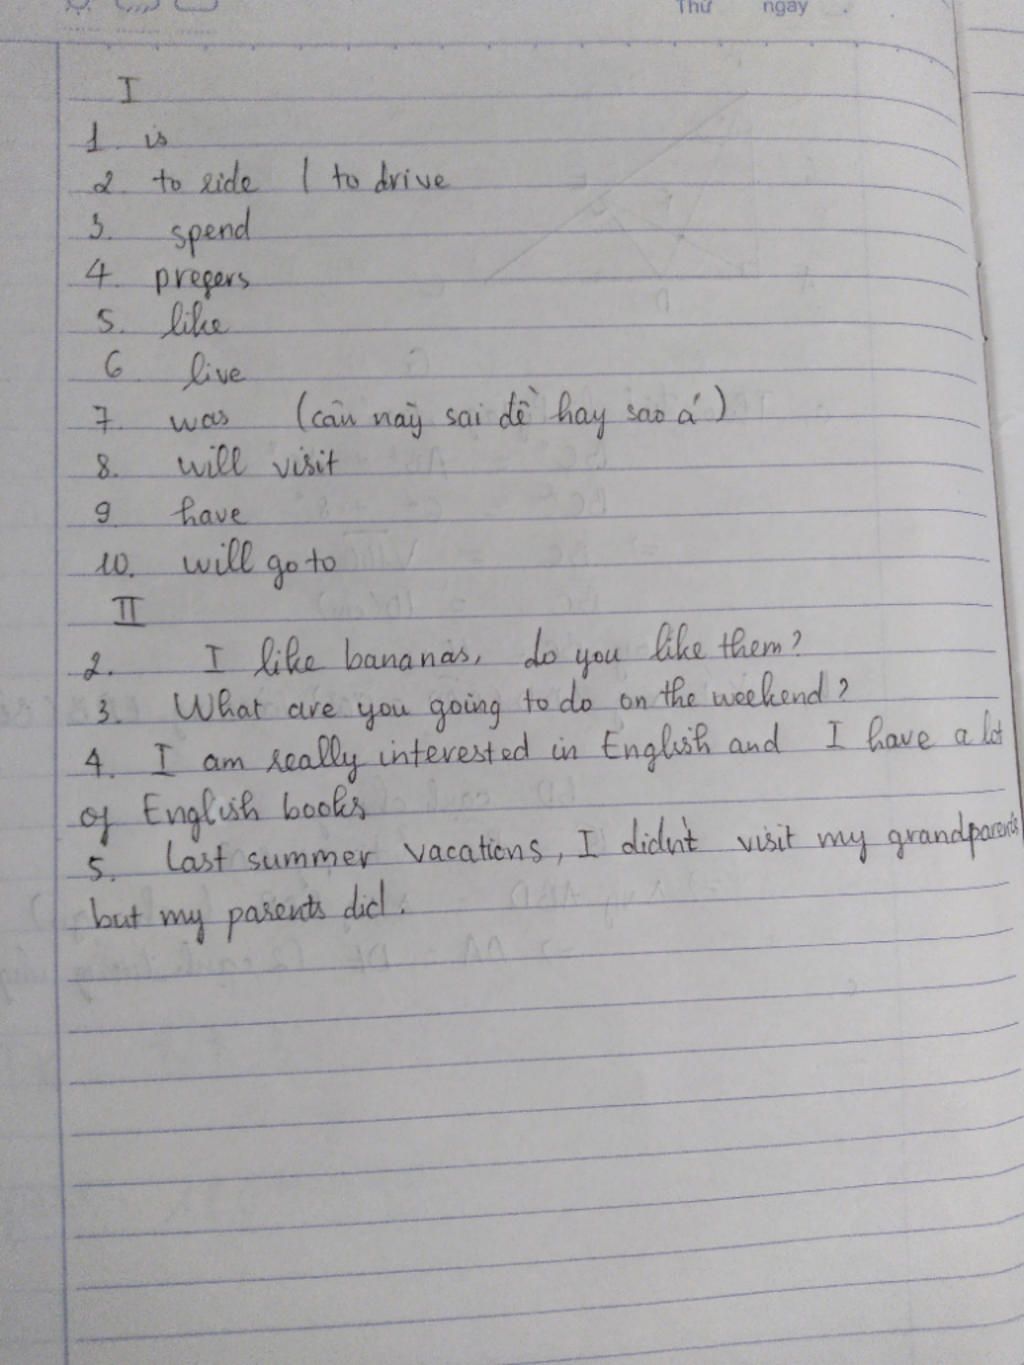 Thứ ngày
I
1. is
2. to ride / to drive
3. spend
4. prefers
5. like
6 live
7. was (câu này sai đề hay sao á)
8. will visit
9 have
10. will go to
II
2. I like bananas, do you like them?
3. What are you going to do on the weekend?
4. I am really interested in English and I have a lot
of English books
5. Last summer vacations, I didn't visit my grandparents
but my parents did.